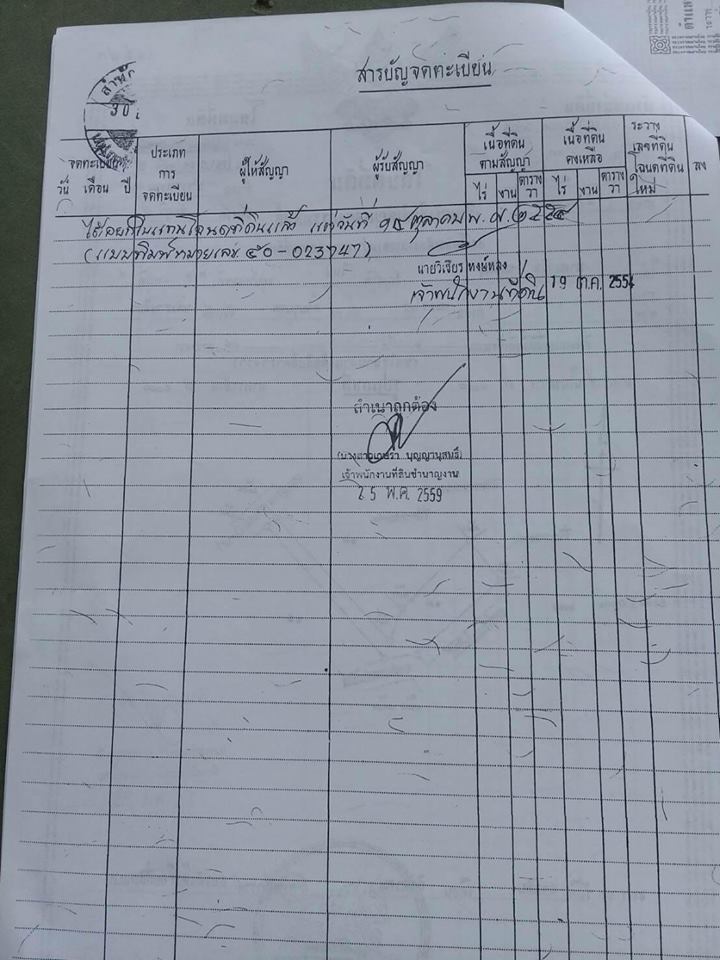 สารบัญจดทะเบียน
30
จดทะเบียน
วัน เดือน ปี
ประเภท
การ
จดทะเบียน
ผู้ให้สัญญา
ผู้รับสัญญา
เนื้อที่ดิน
ตามสัญญา
ไร่ งาน ตาราง
วา
เนื้อที่ดิน
คงเหลือ
ไร่ งาน ตาราง
วา
ระวาง
เลขที่ดิน
โฉนดที่ดิน
ใหม่
ลง
ได้ออกใบแทนโฉนดที่ดินแล้ว แต่วันที่ ๑๙ ตุลาคม พ.ศ. ๒๕๕๔
(แบบพิมพ์หมายเลข ๕๐-023747)
นายวิเชียร หงษ์หลง
เจ้าพนักงานที่ดิน 19 ต.ค. 2554
สำเนาถูกต้อง
บุญญานุสนธิ์)
เจ้าพนักงานที่ดินชำนาญงาน
25 พ.ค. 2559